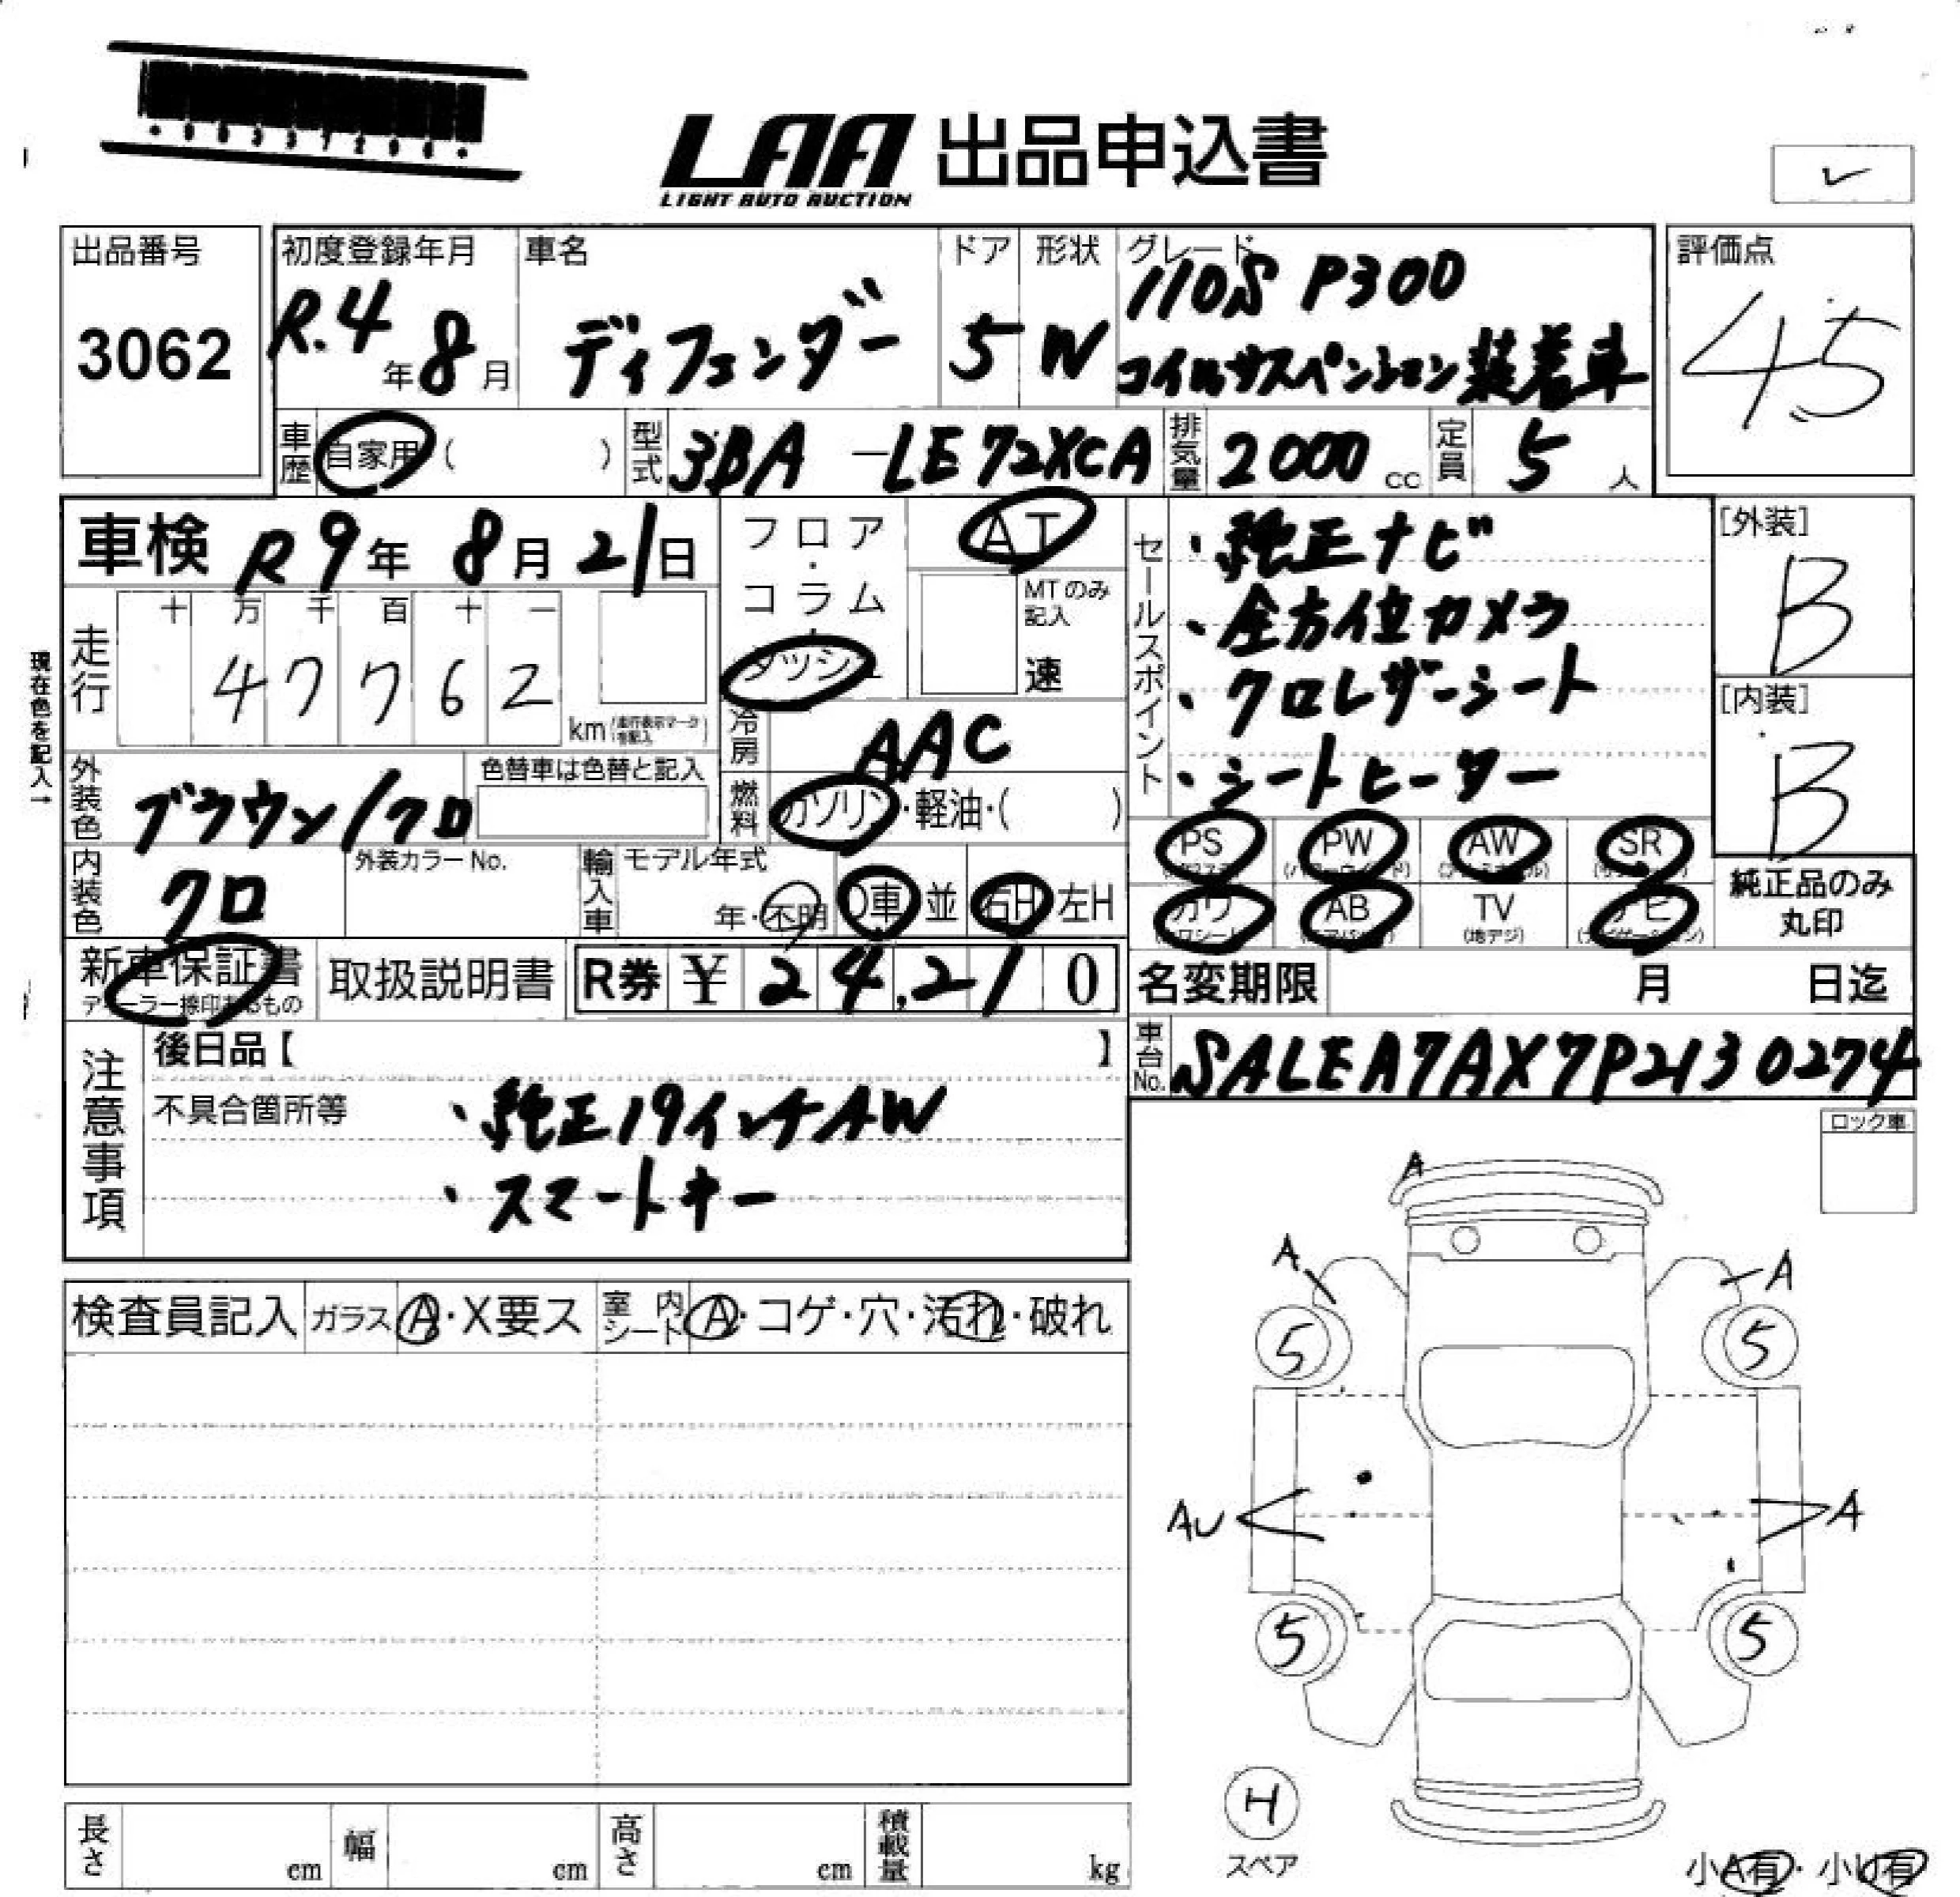 LAA 出品申込書
LIGHT AUTO AUCTION
出品番号 3062
初度登録年月 R.4年8月
車名 ディフェンダー
ドア 5
形状 W
グレード 110S P300
コイルサスペンション装着車
評価点 4.5
車歴 自家用 ( )
型式 3BA-LE72XCA
排気量 2000 cc
定員 5 人
車検 R9年 8月 21日
フロア・コラム・ダッシュ
AT
MTのみ記入 速
セールスポイント
・純正ナビ
・全方位カメラ
・クロレザーシート
・シートヒーター
[外装] B
[内装] B
現在色を記入→
走行 十 万 千 百 十 一
47762 km (走行表示マークを記入)
冷房 AAC
外装色 ブラウン/クロ
色替車は色替と記入
燃料 ガソリン・軽油・( )
内装色 クロ
外装カラーNo.
輸入車 モデル年式 年・不明 D車 並 右H 左H
PS PW AW SR
カワ (カワシート) AB (エアバッグ) TV (地デジ) ナビ (ナビゲーション)
純正品のみ丸印
新車保証書
ディーラー捺印あるもの
取扱説明書
R券 ¥ 24,210
名変期限 月 日迄
車台No. SALEA7AX7P2130274
注意事項
後日品【 】
不具合箇所等
・純正19インチAW
・スマートキー
ロック車
検査員記入 ガラス A・X要ス 室内シート A・コゲ・穴・汚れ・破れ
A
A A
5 5
AU A
5 5
H
スペア
小A有・小U有
長さ cm 幅 cm 高さ cm 積載量 kg